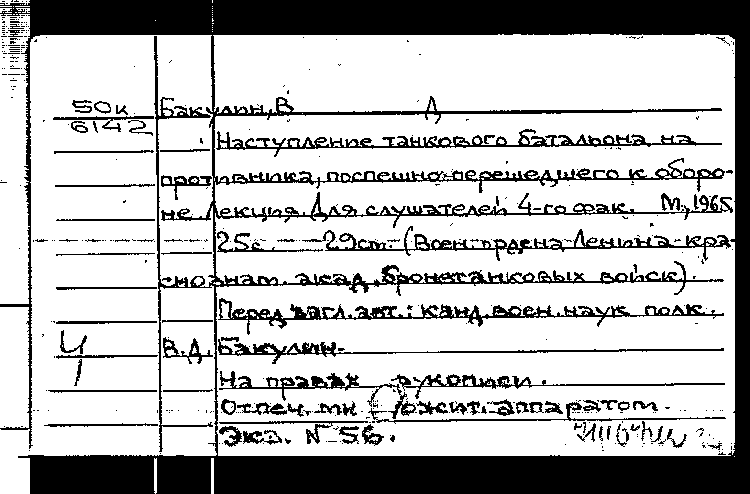 50к Бакулин, В Д
6142
Наступление танкового батальона на
противника, поспешно перешедшего к оборо-
не. Лекция. Для слушателей 4-го фак. М., 1965
25с. — 29см. (Воен. ордена Ленина кра-
снознам. акад. бронетанковых войск).
Перед загл. авт.: канд. воен. наук полк.
В.Д. Бакулин.
На правах рукописи.
Отпеч. мн ожит. аппаратом.
Экз. N 56.